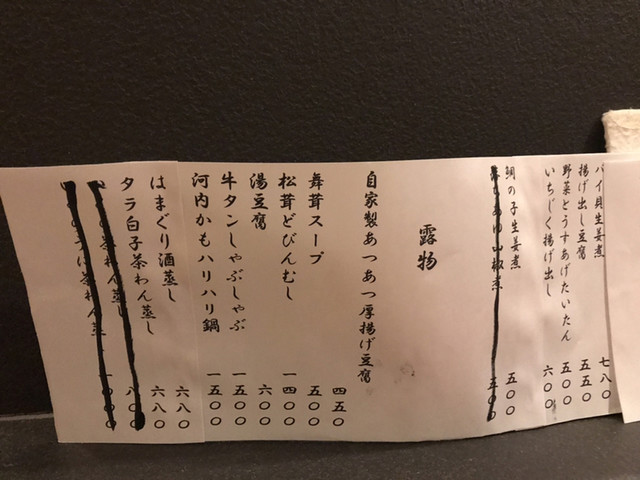 バイ貝生姜煮 七八〇
揚げ出し豆腐 五五〇
野菜とうすあげたいたん 五〇〇
いちじく揚げ出し 六〇〇
鯛の子生姜煮 五〇〇
山椒煮 五〇〇
露物
自家製あつあつ厚揚げ豆腐 四五〇
舞茸スープ 五〇〇
松茸どびんむし 一四〇〇
湯豆腐 六〇〇
牛タンしゃぶしゃぶ 一五〇〇
河内かもハリハリ鍋 一五〇〇
はまぐり酒蒸し 六八〇
タラ白子茶わん蒸し 六八〇
茶わん蒸し 八〇
茶わん蒸